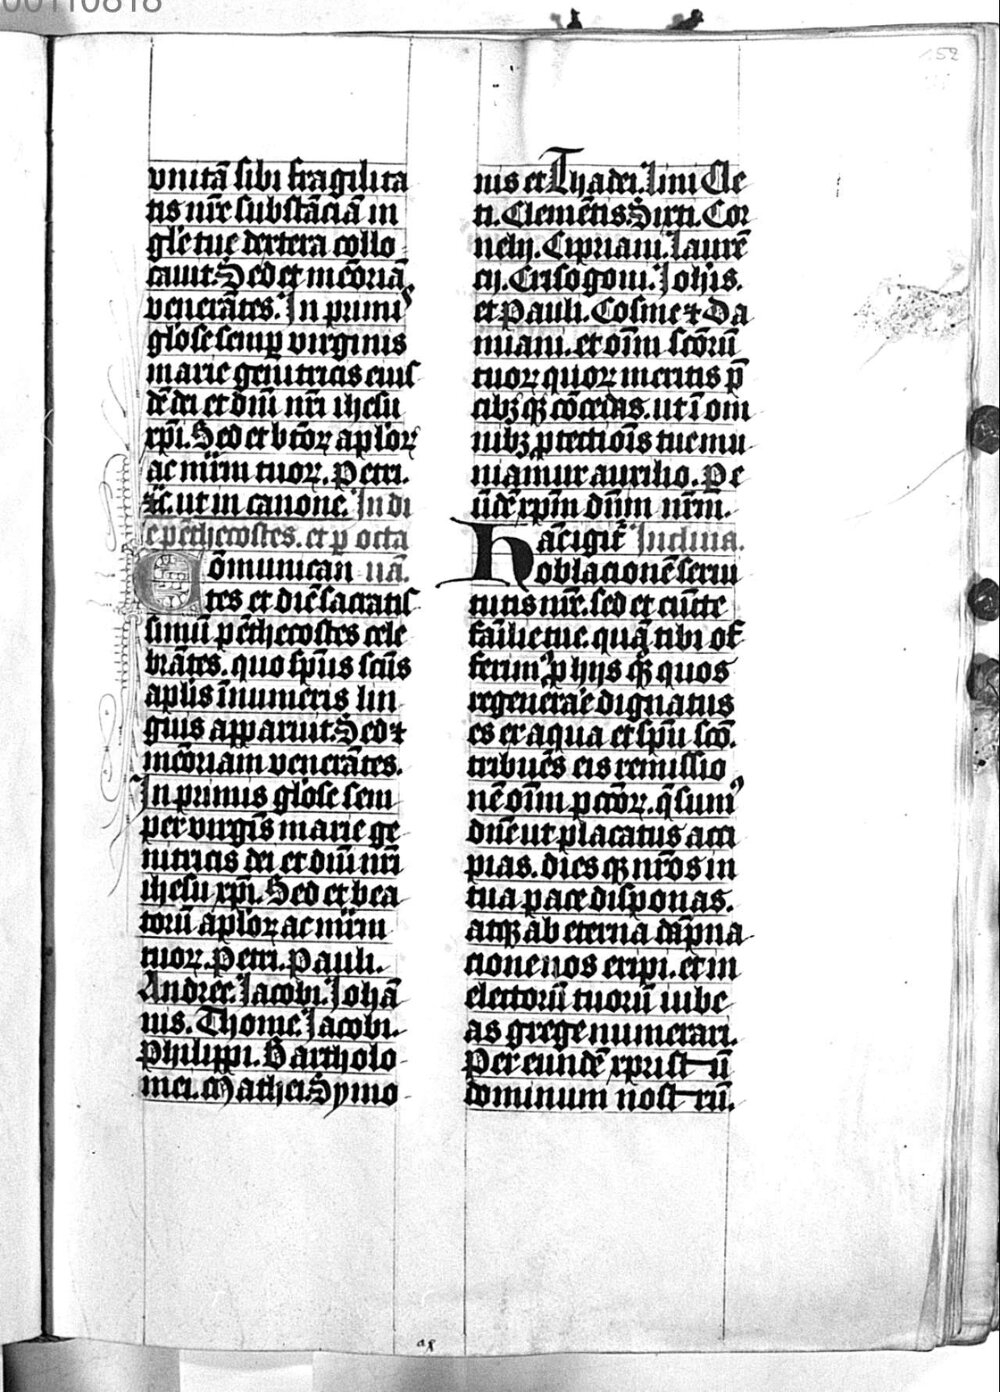 00110818
152
vnitā sibi fragilita
tis nr̄e substāciā in
gl̄e tue dextera collo
cauit. Sed et mēoriā
venerātes. In primiˢ
gl̄ose semp̱ virginis
marie genitricis eiuſ
dē dei et dn̄i nr̄i ihesu
xp̄i. Sed et btōꝝ apl'oꝝ
ac mr̄m tuoꝝ. Petri.
⁊c̄. ut in canone. In di
e pēthecostes. et p̱ octa
Cōmunican uā.
tes et diē sacratiſ
simū pēthecostes cele
brātes. quo sp̄us scūs
apl̄is īnumeris lin
guis apparuit. Sed ⁊
mēoriam venerātes.
In primis gl̄ose sem
per virgīs marie ge
nitricis dei et dn̄i nr̄i
ihesu xp̄i. Sed et bea
torū apl'oꝝ ac mr̄m
tuoꝝ. Petri. Pauli.
Andree. Iacobi. Iohā
nis. Thome. Iacobi.
Philippi. Bartholo
mei. Mathei. Symo
nis et Thadei. Lini Cle
ti. Clemētis Sixti. Cor
nelij. Cipriani. Laurē
cij. Crisogoni. Ioh̄is.
et Pauli. Cosme ⁊ Da
miani. et om̄m scōrū
tuoꝝ quoꝝ meritis p̄
cibꝫ qꝫ cōcedas. ut ī om
nibꝫ ꝓtectiōis tue mu
niamur auxilio. Pe
ūdē xp̄m dn̄m nr̄m.
Hāc igit' Inclina.
oblacionē serui
tutis nr̄e. sed et cūcte
fāilie tue. quā tibi of
ferimꝰ ꝓ hijs qꝫ quos
regenerar̄e dignatus
es ex aqua et sp̄u scō.
tribuēs eis remissio
nē om̄m pctōꝝ. q̄sumꝰ
dn̄e ut placatus acci
pias. dies qꝫ nr̄os in
tua pace disponas.
atqꝫ ab eterna dāpna
cione nos eripi. et in
electorū tuorū iube
as grege numerari.
Per eundē xp̄ist ū
dominum nost rū.